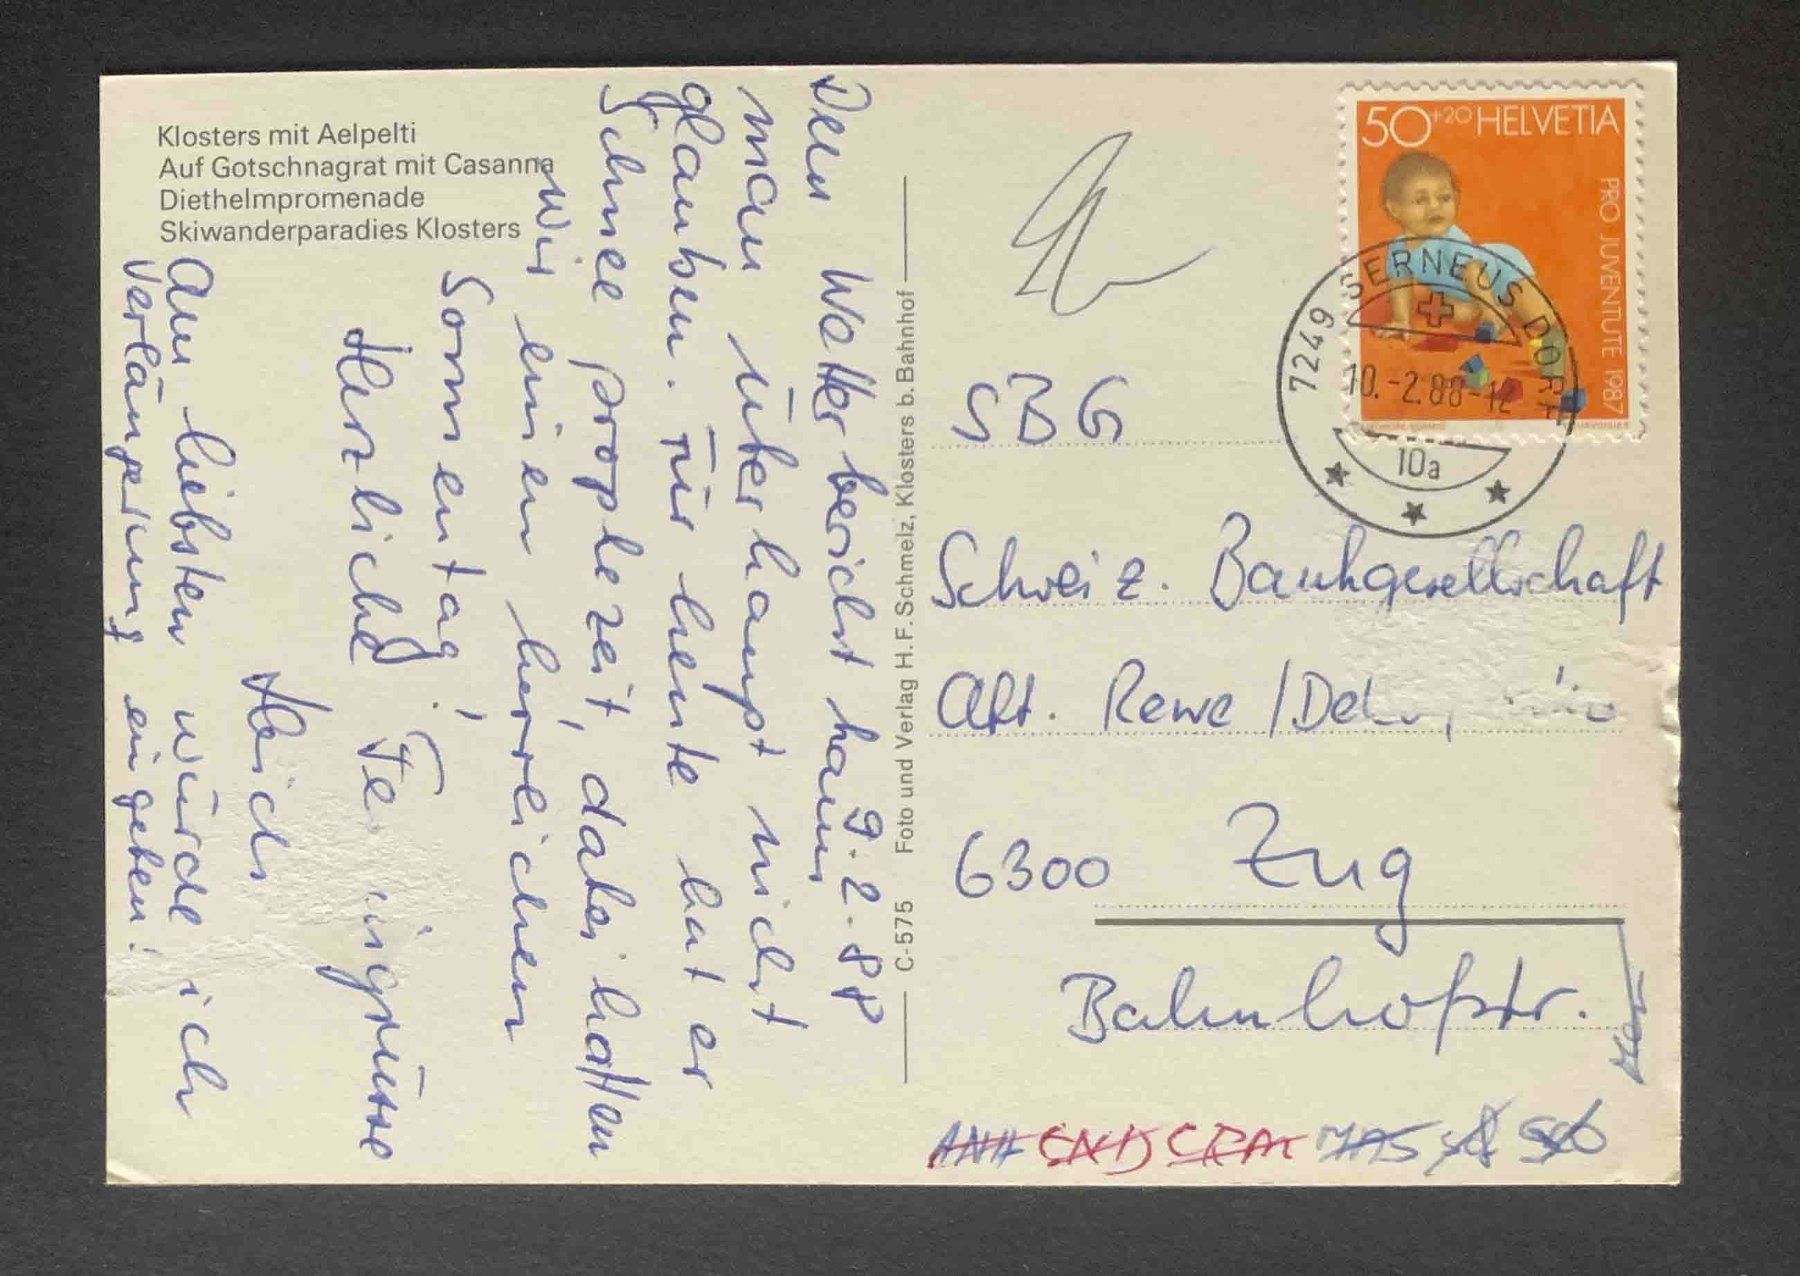 Klosters mit Aelpelti
Auf Gotschnagrat mit Casanna
Diethelmpromenade
Skiwanderparadies Klosters
9.2.88
Dem Wetterbericht kann
man überhaupt nicht
glauben. Für heute hat er
Schnee prophezeit, dabei hatten
wir einen herrlichen
Sonnentag!
Herzliche Feriengrüsse
Heidi
Am liebsten würde ich
Verlängerung eingeben!
C-575 Foto und Verlag H.F. Schmelz, Klosters b. Bahnhof
50+20 HELVETIA
PRO JUVENTUTE 1987
7249 SERNEUS DORF
10.-2.88-12
10a
SBG
Schweiz. Bankgesellschaft
Abt. Rewe /
6300 Zug
Bahnhofstr.
ANH